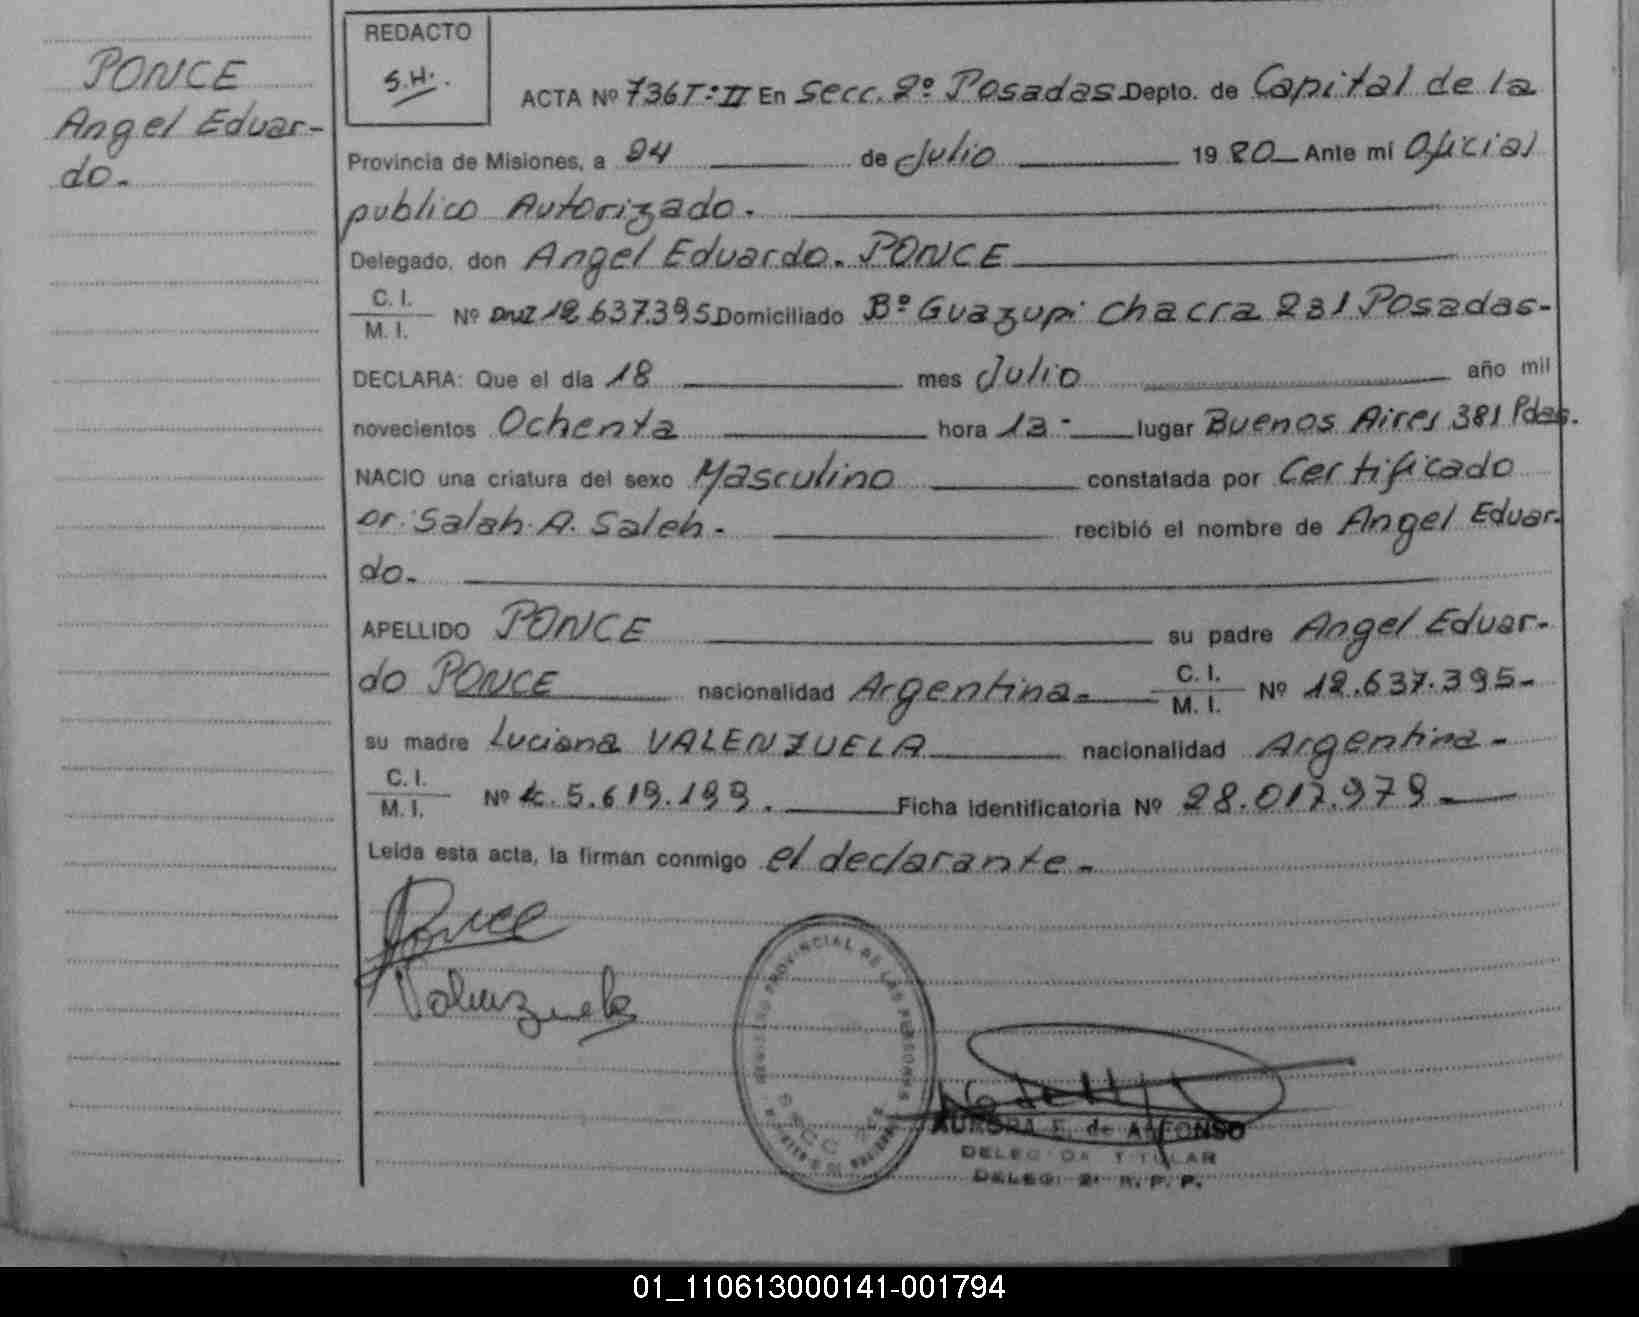 PONCE
Angel Eduar-
do.
REDACTO
S.H.
ACTA Nº 736 T:II En Secc. 2º Posadas Depto. de Capital de la
Provincia de Misiones, a 24 de Julio 19 80 Ante mí Oficial
publico Autorizado.
Delegado, don Angel Eduardo. PONCE
C. I.
M. I.
Nº DNI 12.637.395 Domiciliado Bº Guazupi chacra 231 Posadas-
DECLARA: Que el día 18 mes Julio año mil
novecientos Ochenta hora 13- lugar Buenos Aires 381 Pdas.
NACIO una criatura del sexo Masculino constatada por Certificado
Dr. Salah A. Saleh- recibió el nombre de Angel Eduar-
do.
APELLIDO PONCE su padre Angel Eduar-
do PONCE nacionalidad Argentina- C. I.
M. I.
Nº 12.637.395-
su madre Luciana VALENZUELA nacionalidad Argentina-
C. I.
M. I.
Nº 5.619.199. Ficha identificatoria Nº 28.017.979
Leída esta acta, la firman conmigo el declarante.-
Ponce
Valenzuela
REGISTRO PROVINCIAL DE LAS PERSONAS
SECC.
AURORA E. de ALFONSO
DELEGADA TITULAR
DELEG. 2ª R. P. P.
01_110613000141-001794